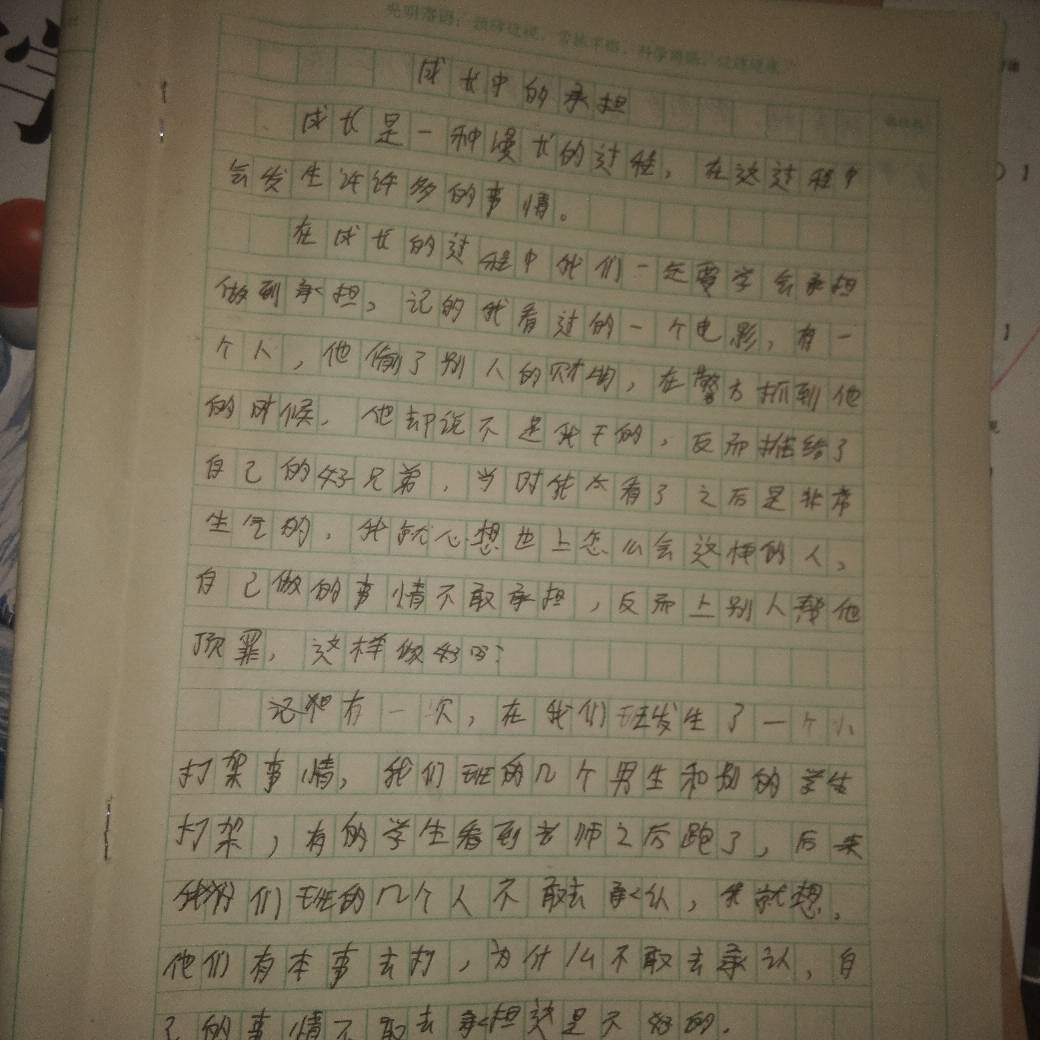 成长中的承担
成长是一种漫长的过程，在这过程中
会发生许许多的事情。
在成长的过程中我们一定要学会承担
做到承担。记的我看过的一个电影，有一
个人，他偷了别人的财物，在警方抓到他
的时候，他却说不是我干的，反而推给了
自己的好兄弟，当时我看了之后是非常
生气的，我就心想世上怎么会这样的人，
自己做的事情不敢承担，反而上别人帮他
顶罪，这样做好吗？
记得有一次，在我们班发生了一个小
打架事情，我们班的几个男生和别的学生
打架，有的学生看到老师之后跑了，后来
我们班的几个人不敢去承认，我就想，
他们有本事去打，为什么不敢去承认，自
己的事情不敢去承担这是不好的.